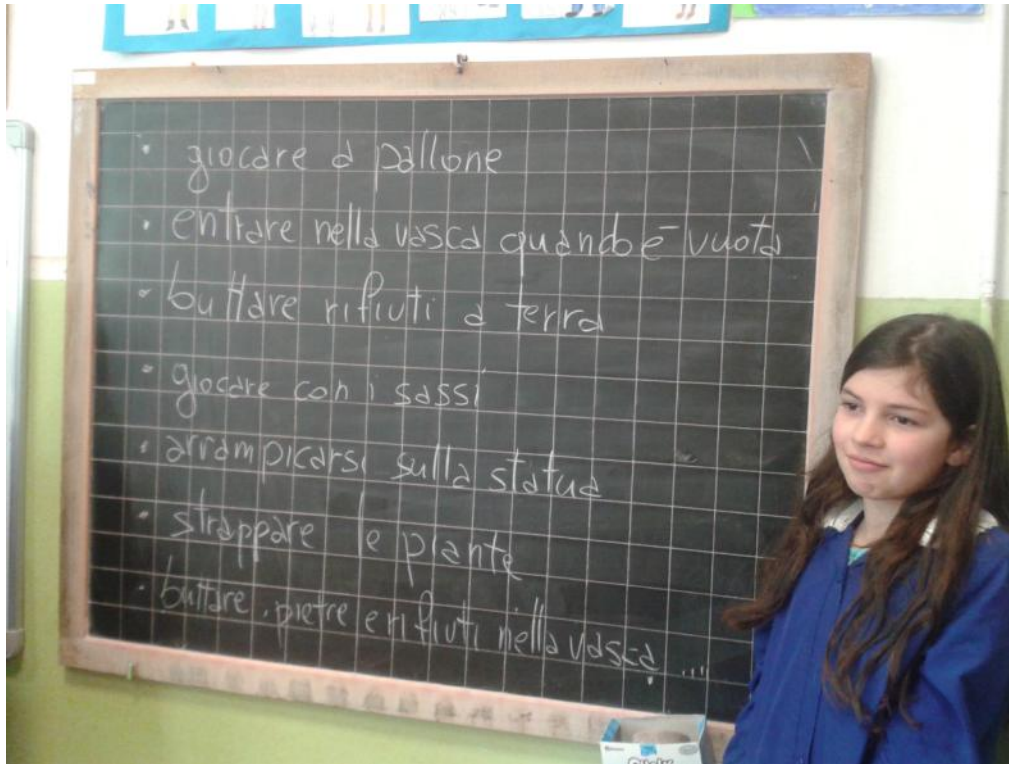 • giocare a pallone
• entrare nella vasca quando è vuota
• buttare rifiuti a terra
• giocare con i sassi
• arrampicarsi sulla statua
• strappare le piante
• buttare pietre e rifiuti nella vasca ...